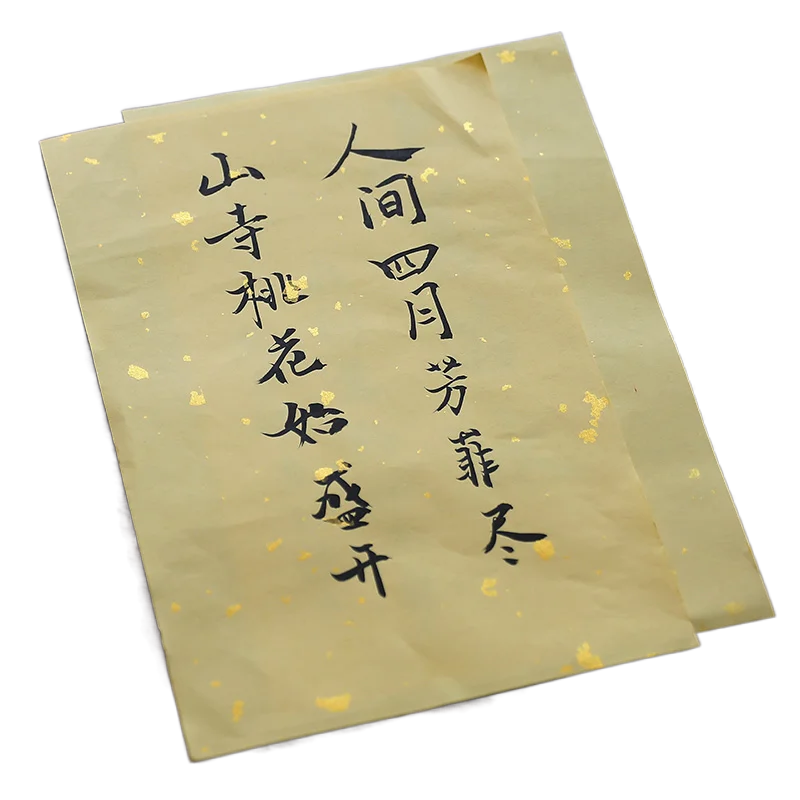 人间四月芳菲尽
山寺桃花始盛开